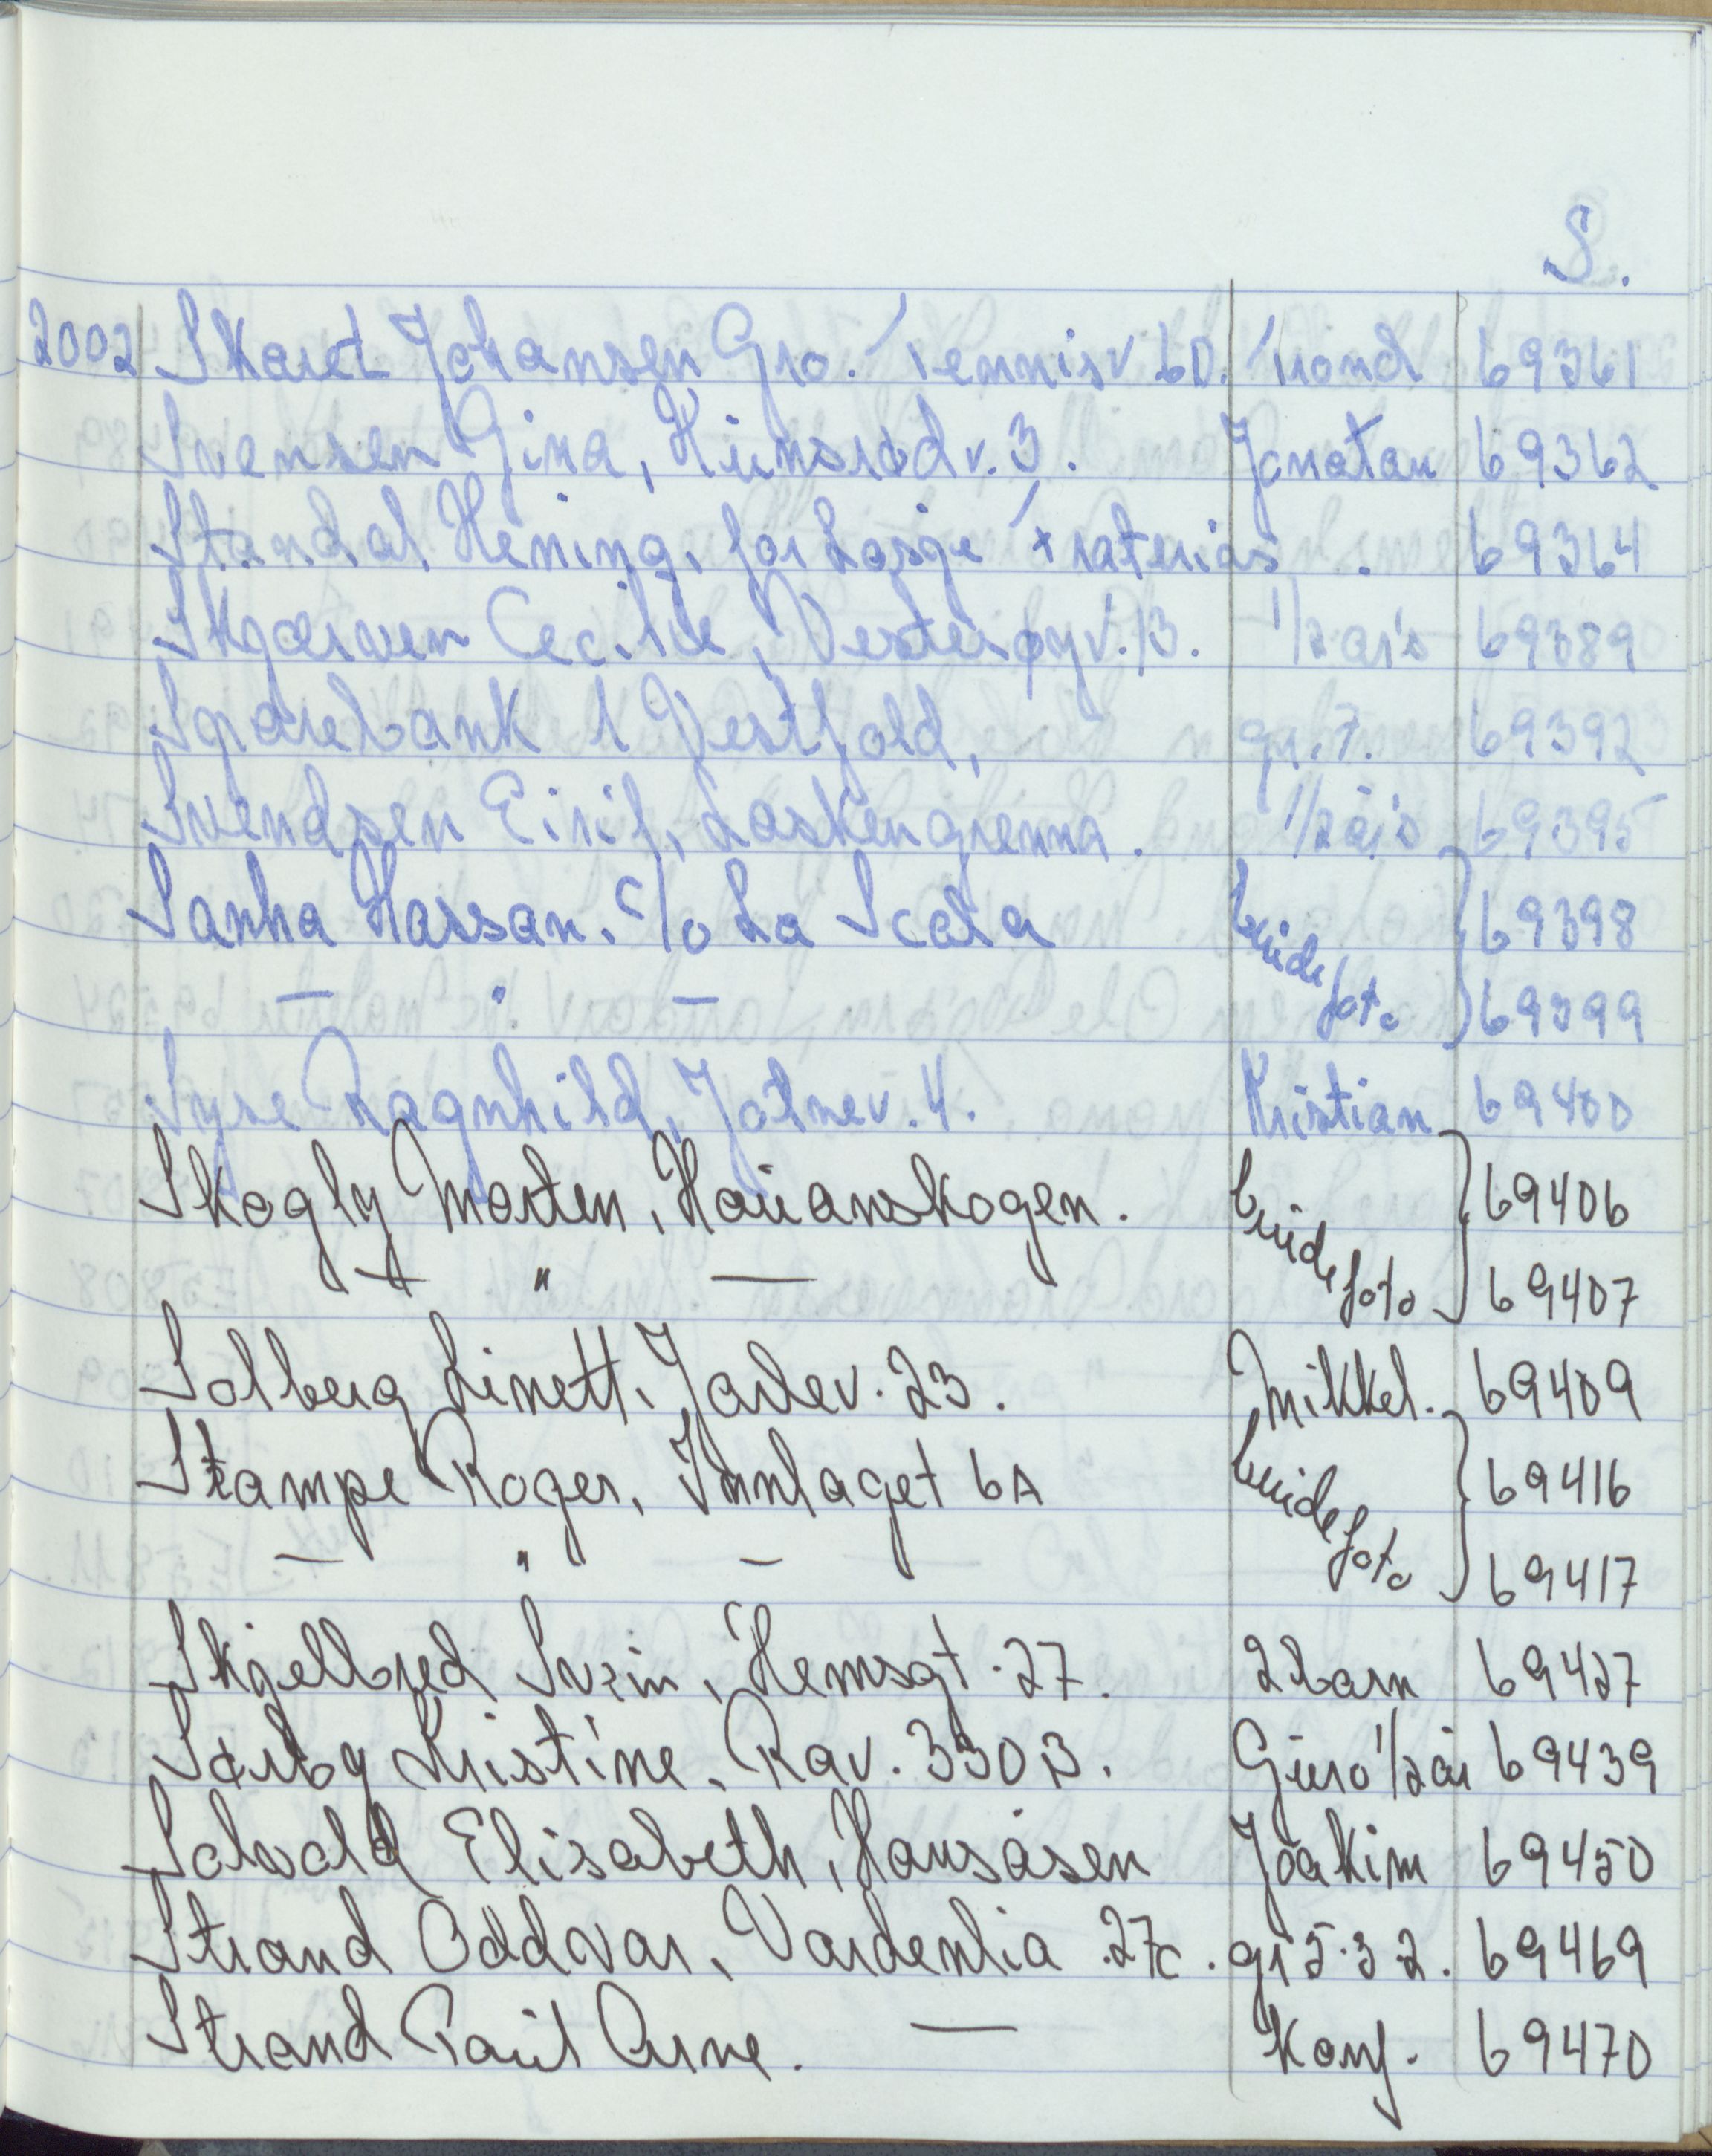 S.
2002 Skaret Johansen Gro. Tennisv 6D. Trond 69361
Svensen Gina, Heimsrødv. 3. Jonatan 69362
Standal Hening, for Losje Fraternitas . 69364
Skjærven Cecilie, Vesterøyv. 13. 1/2 års 69389
Sparebank 1 Vestfold, gr. 7. 69392
Svendsen Eirif, Laskengrenna. 1/2 års 69395
Sanha Hassan. c/o La Scala brude 69398
— " — foto 69399
Syse Ragnhild, Jotnev. 4. Kristian 69400
Skogly Morten, Hauanskogen. brude 69406
— " — foto 69407
Solberg Linett. Jarlev. 23. Mikkel. 69409
Stampe Roger, Tunlaget 6A brude 69416
— " — foto 69417
Skjelbred Svein, Hemsgt. 27. 2 barn 69427
Sørby Kristine. Rav. 330 B. Guro 1/2 år 69439
Solvold Elisabeth, Hansåsen Joakim 69450
Strand Oddvar, Vardenlia 27c. gr 5. 3 2. 69469
Strand Paul Arne. — Konf. 69470